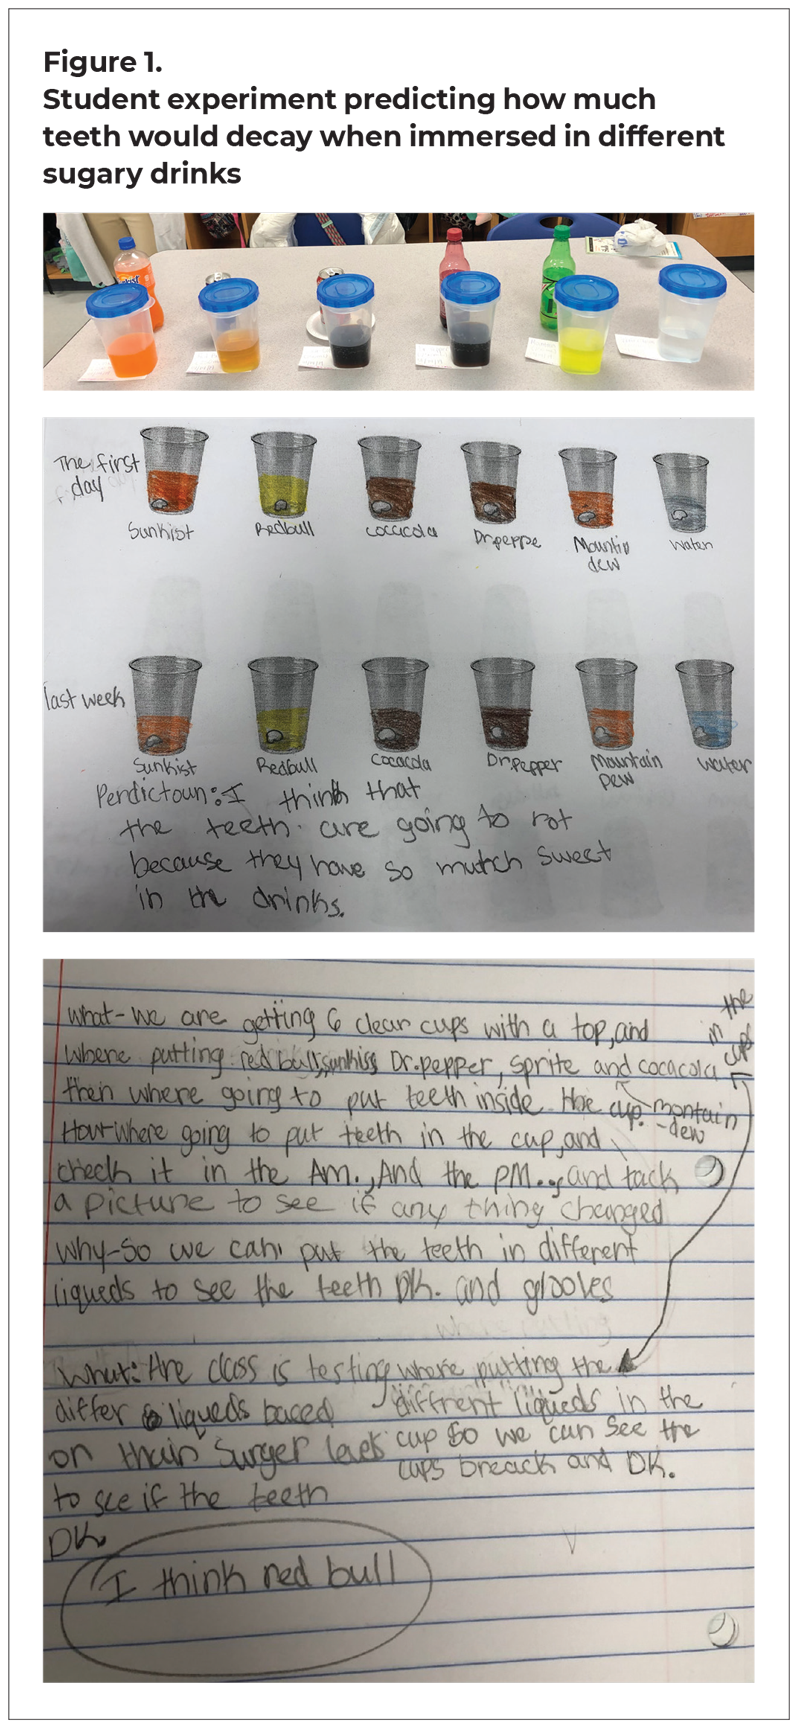 Figure 1.
Student experiment predicting how much
teeth would decay when immersed in different
sugary drinks
The first
day
Sunkist
Redbull
cocacola
Dr.peppe
Mountin
dew
water
last week
Sunkist
Redbull
Cocacola
Dr.pepper
Mountain
Dew
water
Perdictoun: I think that
the teeth are going to rot
because they have so mutch sweet
in the drinks.
what-we are getting 6 clear cups with a top, and
where putting red bull, sunkiss Dr.pepper, sprite and cocacola
in the
cups
then where going to put teeth inside the cup.
montain
-dew
How-where going to put teeth in the cup, and
check it in the Am., And the PM., and tack
a picture to see if any thing changed
why-So we can put the teeth in different
liqueds to see the teeth DK. and glooves
What: Are class is testing
differ liqueds baced
on thair surger levels
to see if the teeth
DK
where putting the
diffrent liqueds in the
cup so we can see the
cups breack and DK.
I think red bull